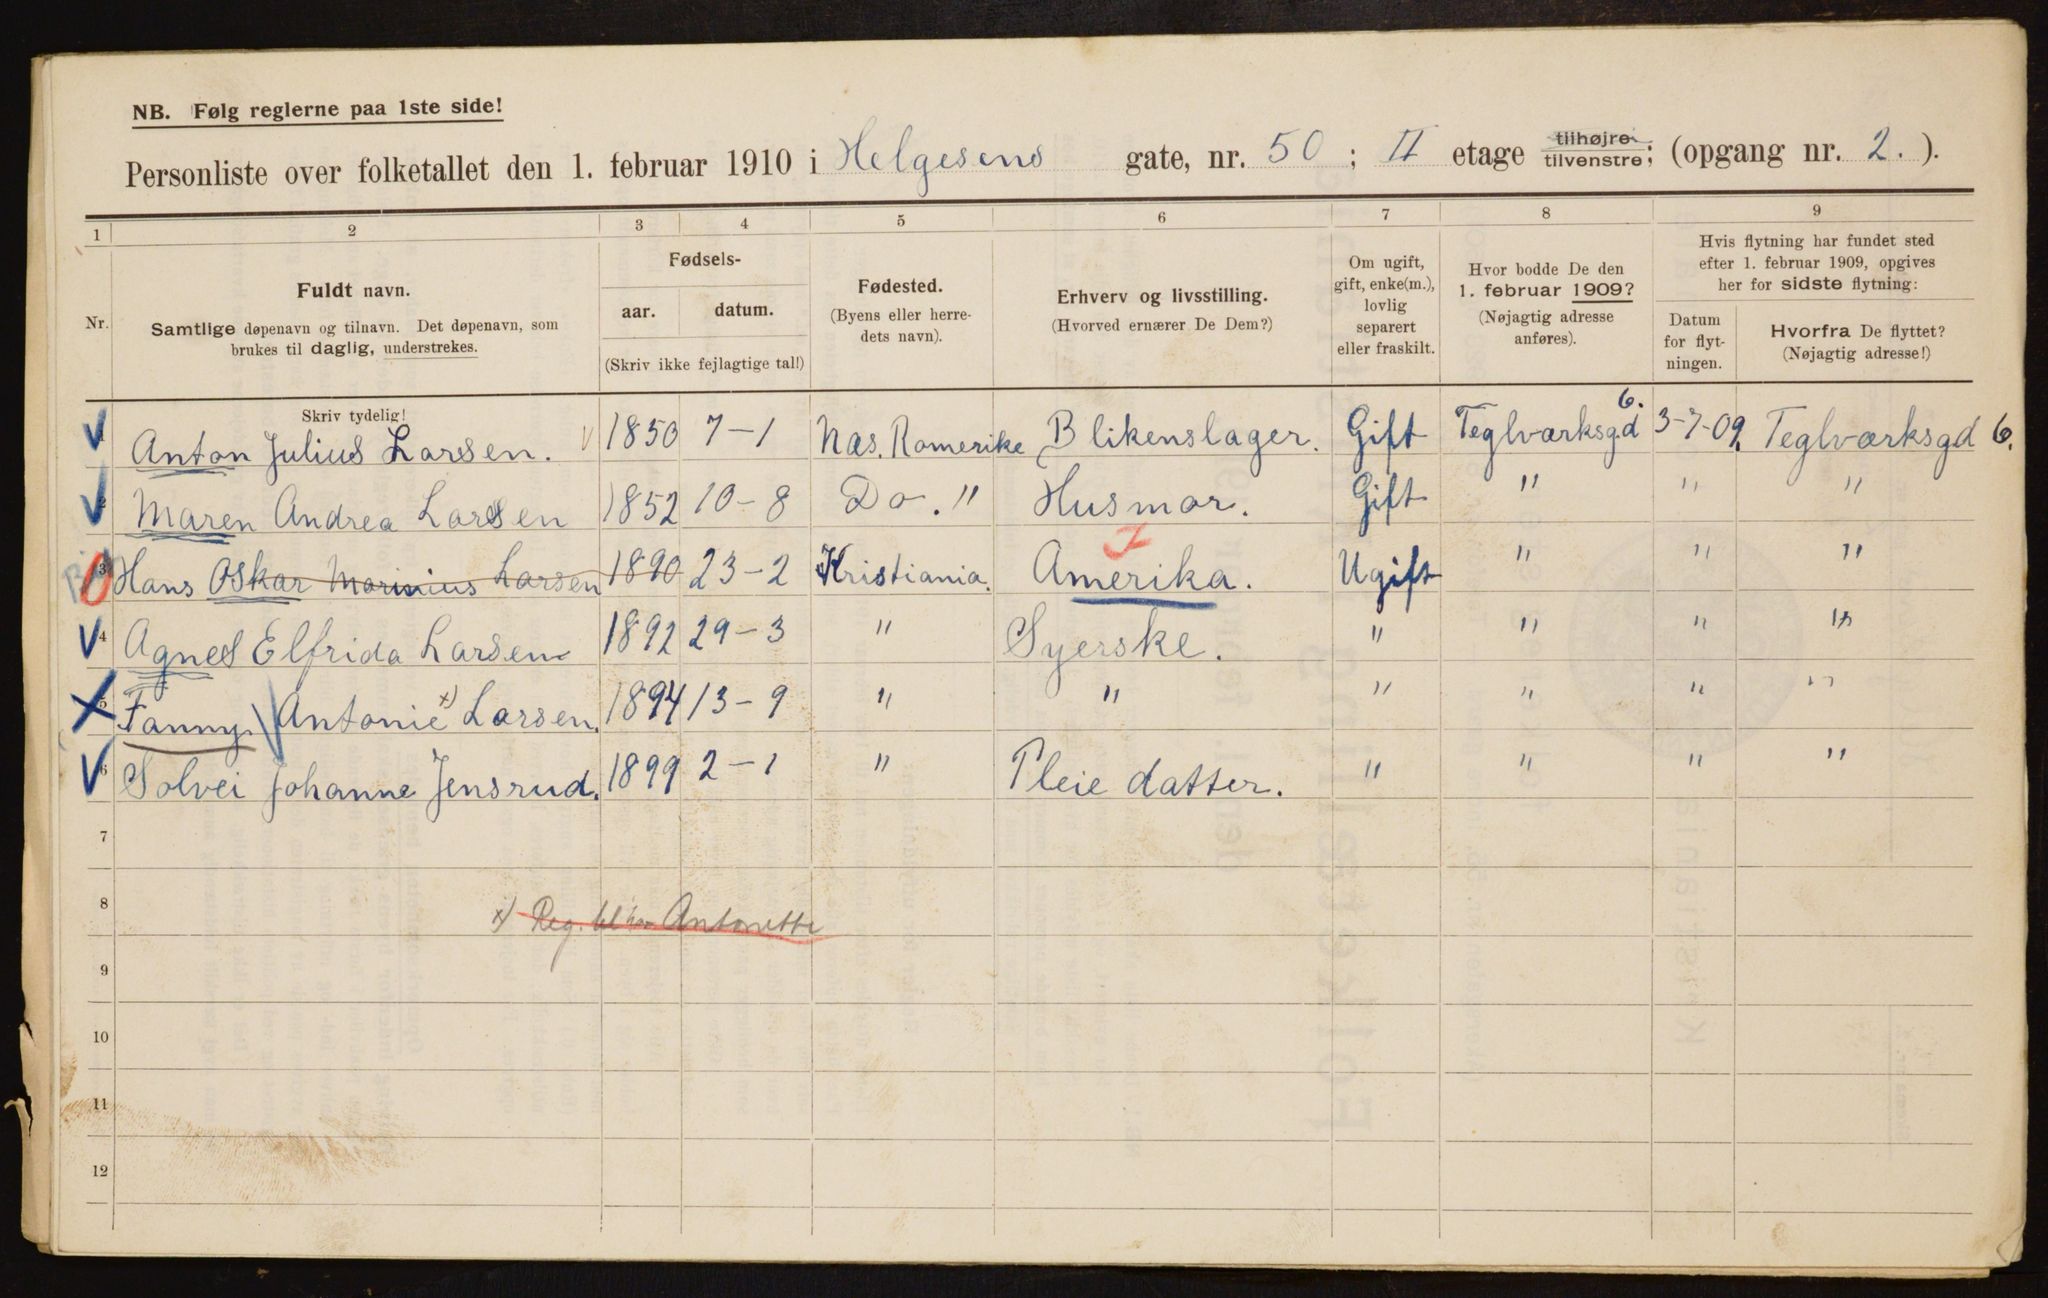 NB. Følg reglerne paa 1ste side!
Personliste over folketallet den 1. februar 1910 i Helgesens gate, nr. 50 ; II etage tilhøjre tilvenstre; (opgang nr. 2. ).
1 2 3 4 5 6 7 8 9
Nr.
Fuldt navn.
Samtlige døpenavn og tilnavn. Det døpenavn, som
brukes til daglig, understrekes.
Fødsels-
aar. datum.
(Skriv ikke fejlagtige tal!)
Fødested.
(Byens eller herre-
dets navn).
Erhverv og livsstilling.
(Hvorved ernærer De Dem?)
Om ugift,
gift, enke(m.),
lovlig
separert
eller fraskilt.
Hvor bodde De den
1. februar 1909?
(Nøjagtig adresse
anføres).
Hvis flytning har fundet sted
efter 1. februar 1909, opgives
her for sidste flytning:
Datum
for flyt-
ningen.
Hvorfra De flyttet?
(Nøjagtig adresse!)
Skriv tydelig!
Anton Julius Larsen. 1850 7-1 Næs. Romerike Blikenslager. Gift Teglværksgd 6. 3-7-09. Teglværksgd 6.
2 Maren Andrea Larsen 1852 10-8 Do. " Husmor. Gift " " "
3 Hans Oskar Marinius Larsen 1890 23-2 Kristiania. Amerika. Ugift " " "
4 Agnes Elfrida Larsen 1892 29-3 " Syerske. " " " "
5 Fanny Antonie x) Larsen. 1894 13-9 " " " " " "
6 Solvei Johanne Jensrud. 1899 2-1 " Pleie datter. " " " "
7
8
x) Reg. Antonette
9
10
11
12